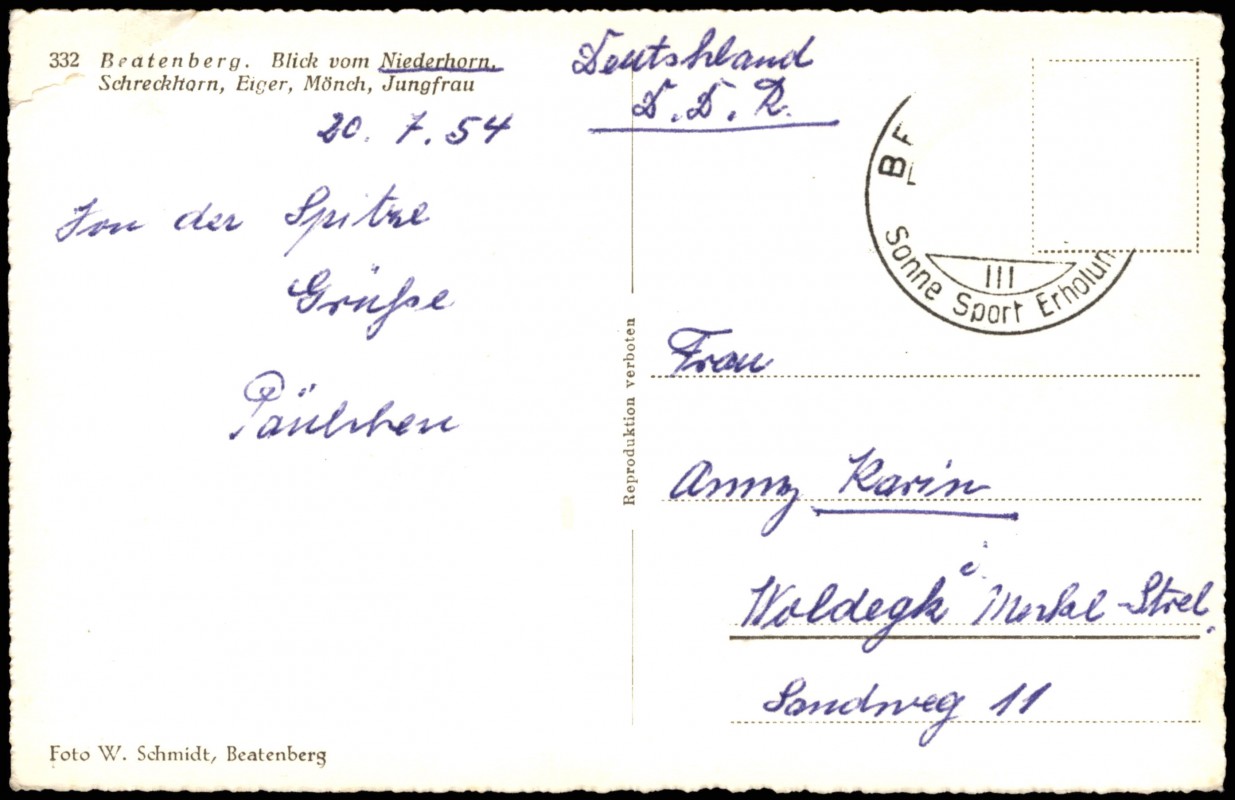 332 Beatenberg. Blick vom Niederhorn.
Schreckhorn, Eiger, Mönch, Jungfrau
20. 7. 54
Von der Spitze
Grüße
Päulchen
Foto W. Schmidt, Beatenberg
Reproduktion verboten
Deutschland
D.D.R.
III
Sonne Sport Erholun
Frau
Anny Karin
Woldegk i Meckl-Strel.
Sandweg 11